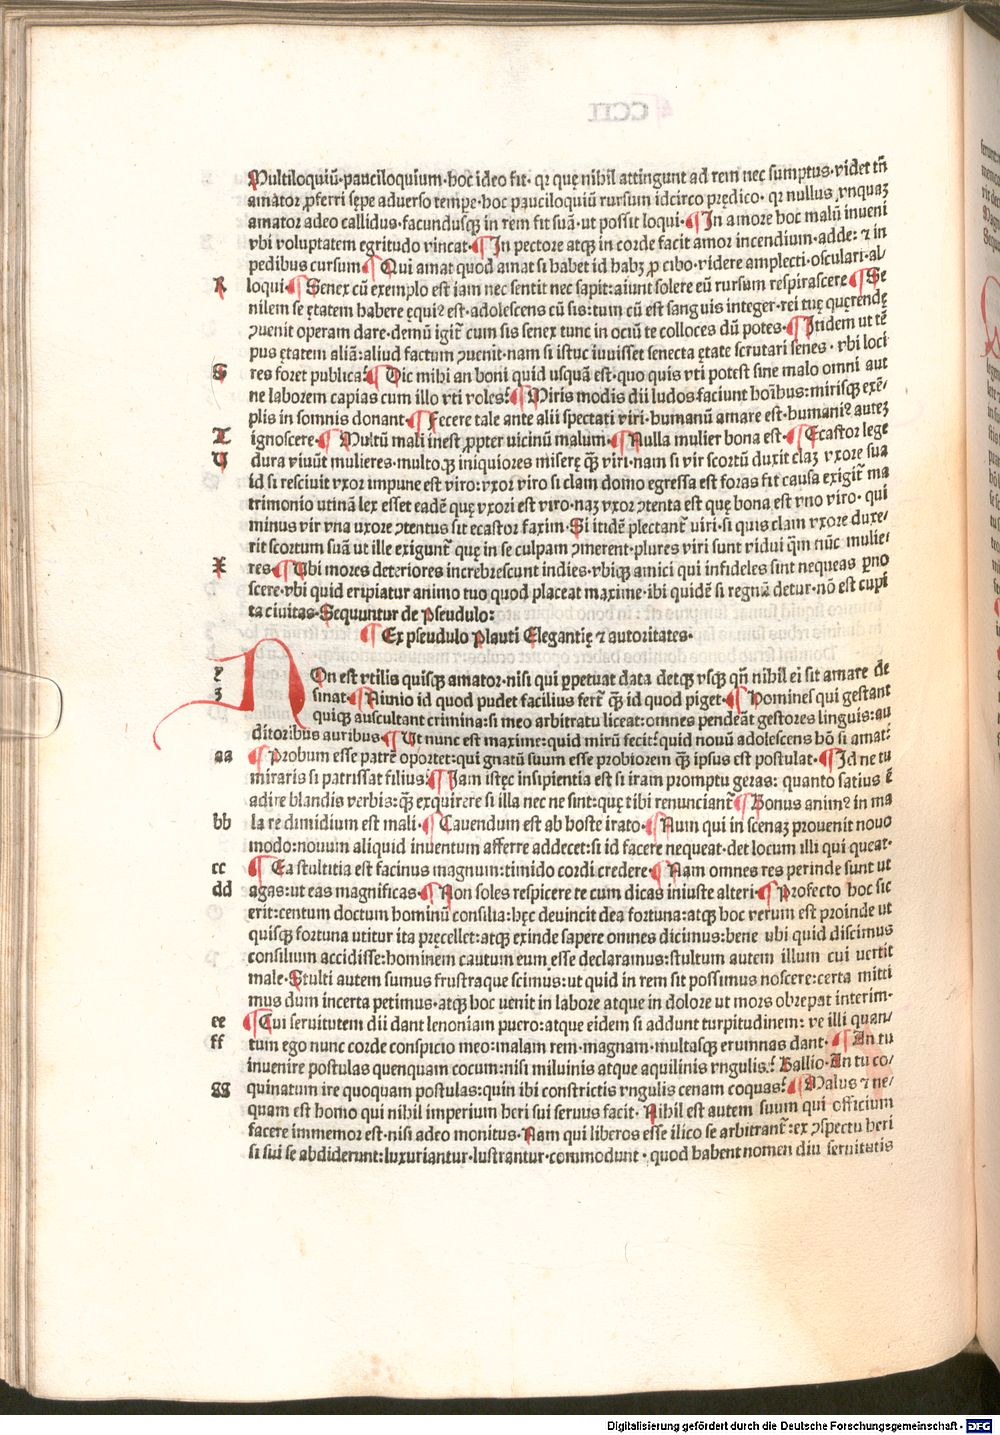 Multiloquiū·pauciloquium·hoc ideo fit· qr quę nihil attingunt ad rem nec sumptus·videt tñ
amator ꝓferri sępe adverso tempe·hoc pauciloquiū rursum idcirco prędico· qr nullus vnquaꝫ
amator adeo callidus·facundusqꝫ in rem fit suā·ut possit loqui·¶In amore hoc malū inueni
vbi voluptatem egritudo vincat·¶In pectore atqꝫ in corde facit amor incendium·adde: ⁊ in
pedibus cursum¶Qui amat quod amat si habet id habꝫ ꝓ cibo·videre amplecti·osculari·al/
R loqui·¶Senex cū exemplo est iam nec sentit nec sapit:aiunt solere eū rursum respirascere¶Se
nilem se ętatem habere ęquiꝰ est·adolescens cū sis:tum cū est sanguis integer·rei tuę quęrendę
ꝯuenit operam dare·demū igit᷑ cum sis senex tunc in ociū te colloces dū potes·¶Itidem ut tē
pus ętatem aliā:aliud factum ꝯuenit·nam si istuc iuuisset senecta ętate scrutari senes· vbi loci
S res foret publica?¶Dic mihi an boni quid usquā est·quo quis vti potest sine malo omni aut
ne laborem capias cum illo vti voles?¶Miris modis dii ludos faciunt hoībus:mirisqꝫ exē/
plis in somnis donant·¶Fecere tale ante alii spectati viri·humanū amare est·humaniꝰ auteꝫ
T ignoscere·¶Multū mali inest ꝓpter uicinū malum·¶Nulla mulier bona est·¶Ecastor lege
V dura viuūt mulieres·multo·qꝫ iniquiores miserę qꝫ̄ viri·nam si vir scortū duxit claꝫ vxore sua
id si resciuit vxor impune est viro:vxor viro si clam domo egressa est foras fit causa exigit᷑ ma
trimonio utinā lex esset eadē quę vxori est viro·naꝫ vxor ꝯtenta est quę bona est vno viro· qui
minus vir vna uxore ꝯtentus sit ecastor faxim·Si itidē plectant᷑ uiri·si quis clam vxore duxe/
rit scortum suā ut ille exigunt᷑ quę in se culpam ꝯmerent·plures viri sunt vidui q̄m nūc mulie/
X res·¶Ubi mores deteriores increbrescunt indies·vbiqꝫ amici qui infideles sint nequeas ꝓno
scere·vbi quid eripiatur animo tuo quod placeat maxime·ibi quidē si regnā detur·nō est cupi
ta ciuitas·Sequuntur de Pseudulo:
¶Ex pseudulo Plauti Elegantię ⁊ autoritates·
y NOn est vtilis quisqꝫ amator·nisi qui ꝑpetuat data detqꝫ vsqꝫ qñ nihil ei sit amare de
z sinat·¶Nimio id quod pudet facilius fert᷑ qꝫ̄ id quod piget·¶Homines qui gestant
quiqꝫ auscultant crimina:si meo arbitratu liceat:omnes pendeāt gestores linguis:au
ditoribus auribus·¶Ut nunc est maxime:quid mirū fecit?quid nouū adolescens hō si amat?
aa ¶Probum esse patrē oportet:qui gnatū suum esse probiorem qꝫ̄ ipsus est postulat·¶Id ne tu
miraris si patrissat filius?¶Iam istęc insipientia est si iram promptu geras: quanto satius ē
adire blandis verbis:qꝫ̄ exquirere si illa nec ne sint:quę tibi renunciant᷑¶Bonus animꝰ in ma
bb la re dimidium est mali·¶Cauendum est ab hoste irato·¶Num qui in scenaꝫ prouenit nouo
modo:nouum aliquid inuentum afferre addecet:si id facere nequeat·det locum illi qui queat·
cc ¶Ea stultitia est facinus magnum:timido cordi credere·¶Nam omnes res perinde sunt ut
dd agas:ut eas magnificas·¶Non soles respicere te cum dicas iniuste alteri·¶Profecto hoc sic
erit:centum doctum hominū consilia:hęc deuincit dea fortuna:atqꝫ hoc verum est proinde ut
quisqꝫ fortuna utitur ita pręcellet:atqꝫ exinde sapere omnes dicimus:bene ubi quid discimus
consilium accidisse:hominem cautum eum esse declaramus:stultum autem illum cui vertit
male·Stulti autem sumus frustraque scimus:ut quid in rem sit possimus noscere:certa mitti
mus dum incerta petimus·atqꝫ hoc uenit in labore atque in dolore ut mors obrepat interim·
ee ¶Cui seruitutem dii dant lenoniam puero:atque eidem si addunt turpitudinem: ve illi quan/
ff tum ego nunc corde conspicio meo:malam rem·magnam·multasqꝫ erumnas dant·¶An tu
inuenire postulas quenquam cocum:nisi miluinis atque aquilinis vngulis? Ballio·An tu co/
gg quinatum ire quoquam postulas:quin ibi constrictis vngulis cenam coquas?¶Malus ⁊ ne/
quam est homo qui nihil imperium heri sui seruus facit· Nihil est autem suum qui officium
facere immemor est·nisi adeo monitus·Nam qui liberos esse ilico se arbitrant᷑:ex ꝯspectu heri
si sui se abdiderunt:luxuriantur·lustrantur·commodunt· quod habent nomen diu seruitutis
Digitalisierung gefördert durch die Deutsche Forschungsgemeinschaft - DFG